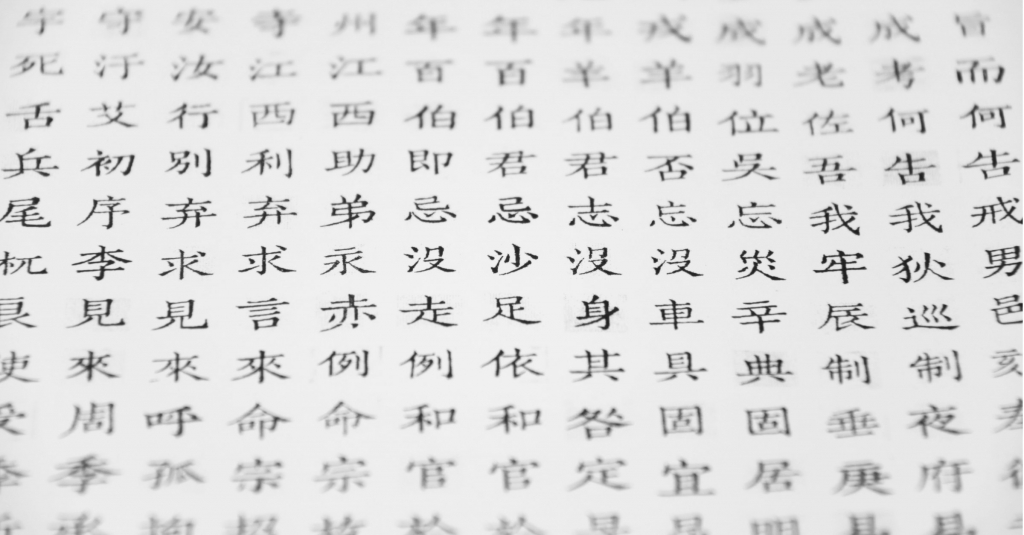 字 守 安 寺 州 年 年 年 戎 成 成 成 旨
死 汙 汝 江 江 百 百 羊 羊 羽 老 考 而
舌 艾 行 西 西 伯 伯 伯 伯 位 佐 何 何
兵 初 別 利 助 即 君 君 否 吳 吾 告 告
尾 序 弃 弃 弟 忌 忌 志 忘 忘 我 我 戒
杌 李 求 求 汞 沒 沙 沒 沒 災 牢 狄 男
良 見 見 言 赤 走 足 身 車 辛 辰 巡 邑
使 來 來 來 例 例 依 其 具 典 制 制 刻
受 周 呼 命 命 和 和 咎 固 固 垂 夜
季 孤 宗 宗 官 官 定 宜 居 庚 府
承 於 於 明